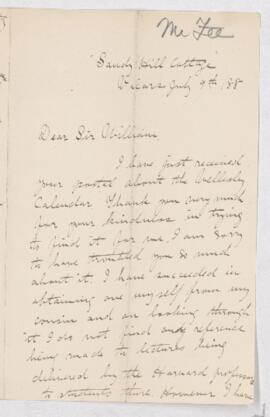 Mc Fee
Sandy Hill Cottage
July 9th, '88
Dear Sir William
I have just received
your postal about the Wellesley
Calendar. Thank you very much
for your kindness in trying
to find it for me. I am sorry
to have troubled you so much
about it. I have succeeded in
obtaining one myself from my
cousin and on looking through
it I do not find any reference
being made to lectures being
delivered by the Harvard professors
to students there. However I have